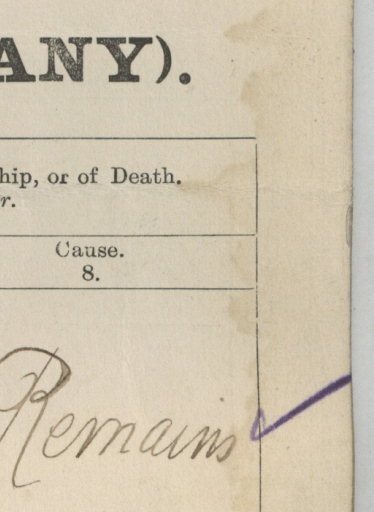 ANY).
hip, or of Death.
r.
Cause.
8.
Remains